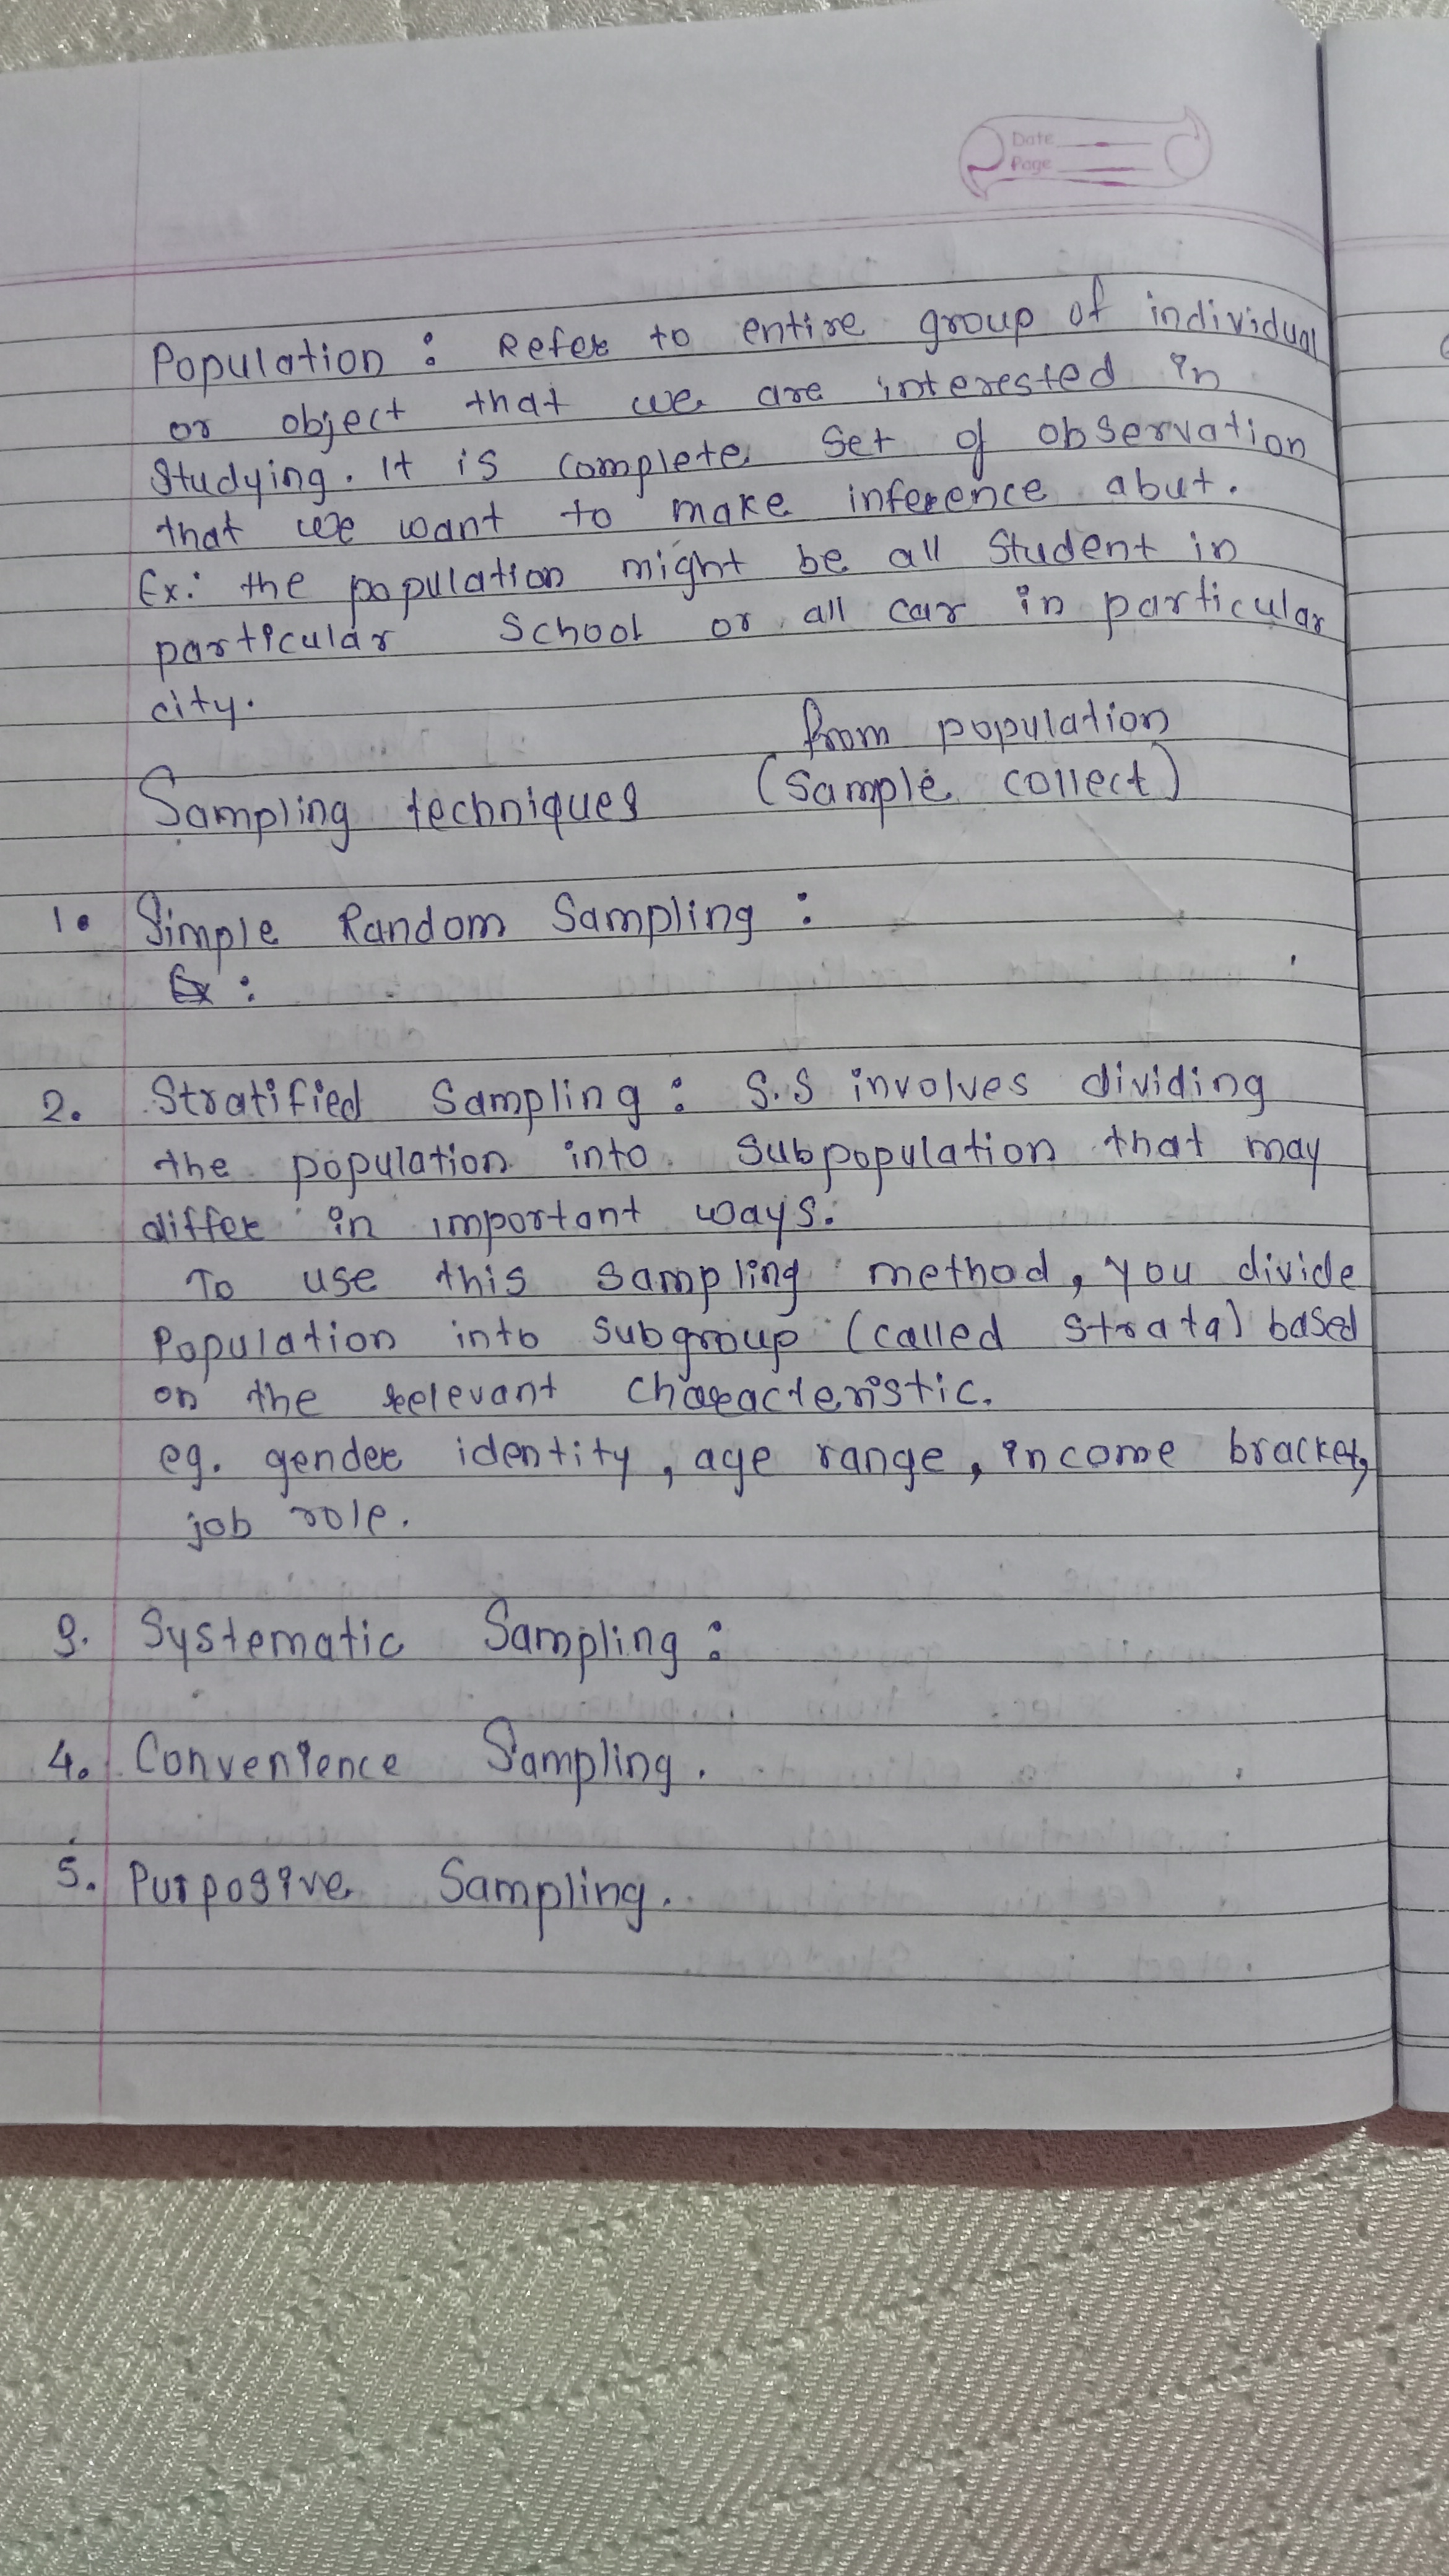 Date
Page
Population : Refer to entire group of individual
or object that we are interested in
studying. It is complete set of observation
that we want to make inference abut.
Ex: the population might be all student in
particular school or all car in particular
city.
from population
Sampling techniques (sample collect)
1. Simple Random Sampling :
Ex :
2. Stratified Sampling : S.S involves dividing
the population into subpopulation that may
differ in important ways.
To use this sampling method, you divide
population into subgroup (called strata) based
on the relevant characteristic.
eg. gender identity, age range, income bracket,
job role.
3. Systematic Sampling :
4. Convenience Sampling.
5. Purposive Sampling.